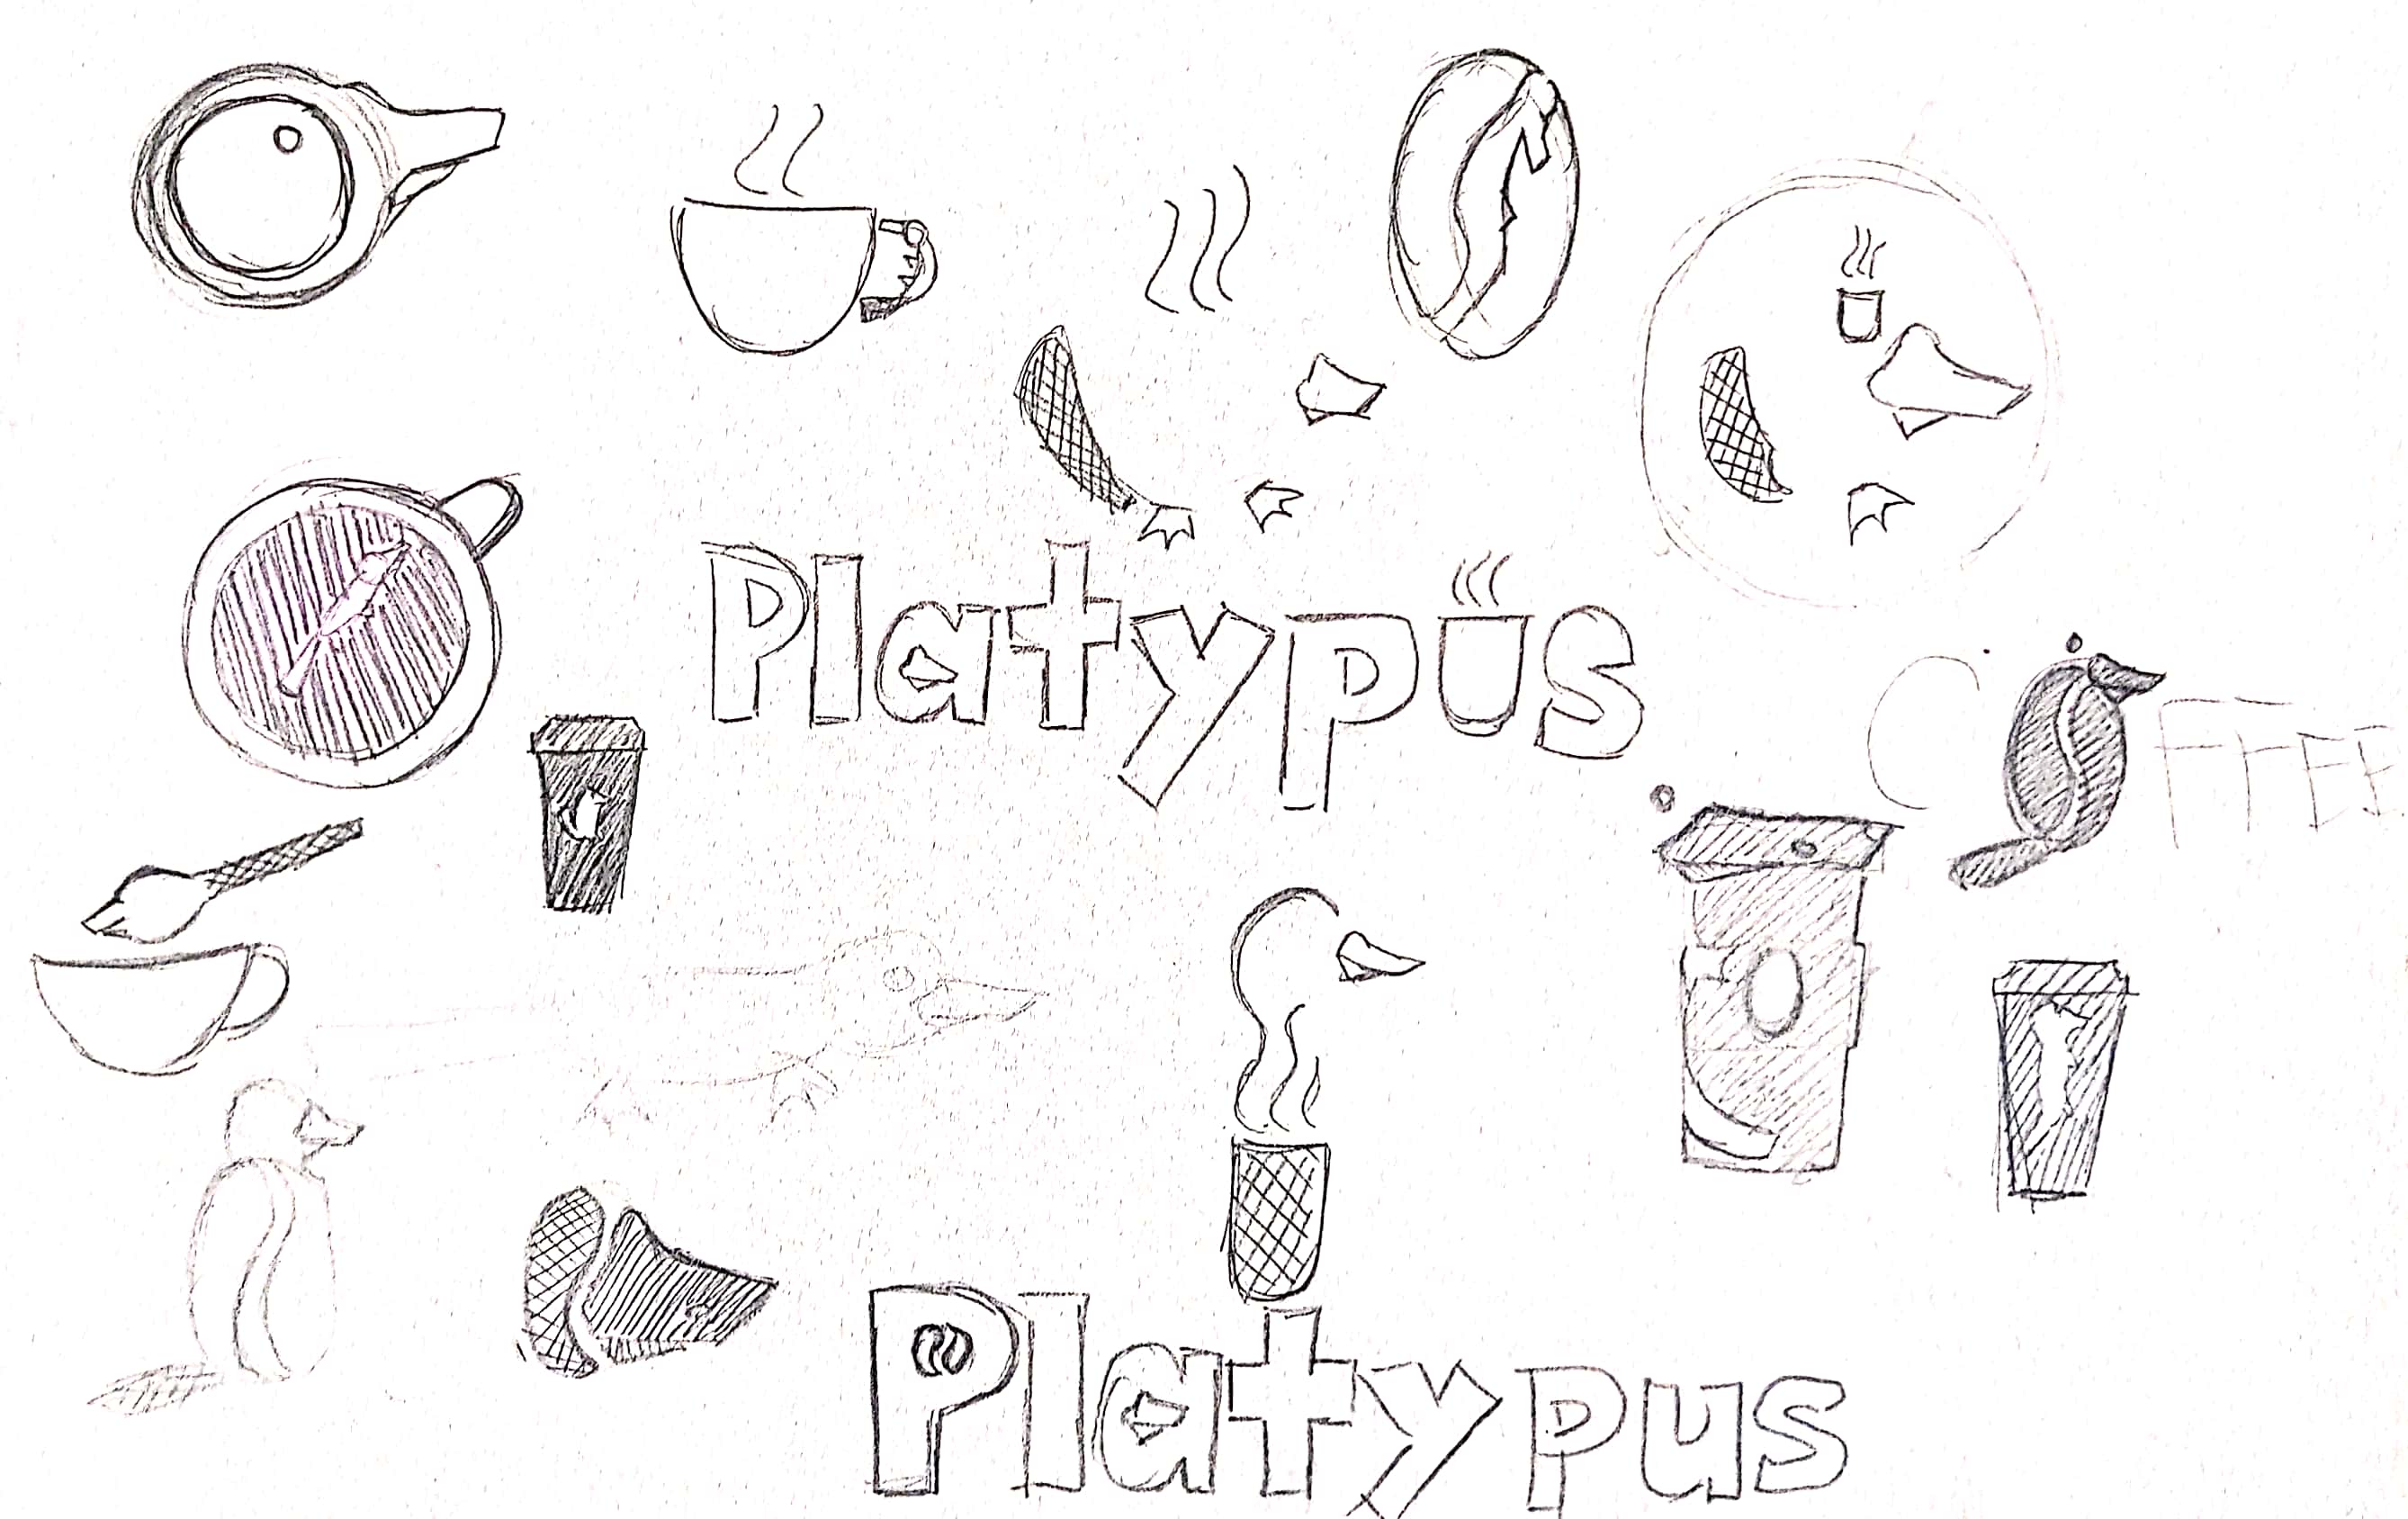 Platypus
COFFEE
Platypus